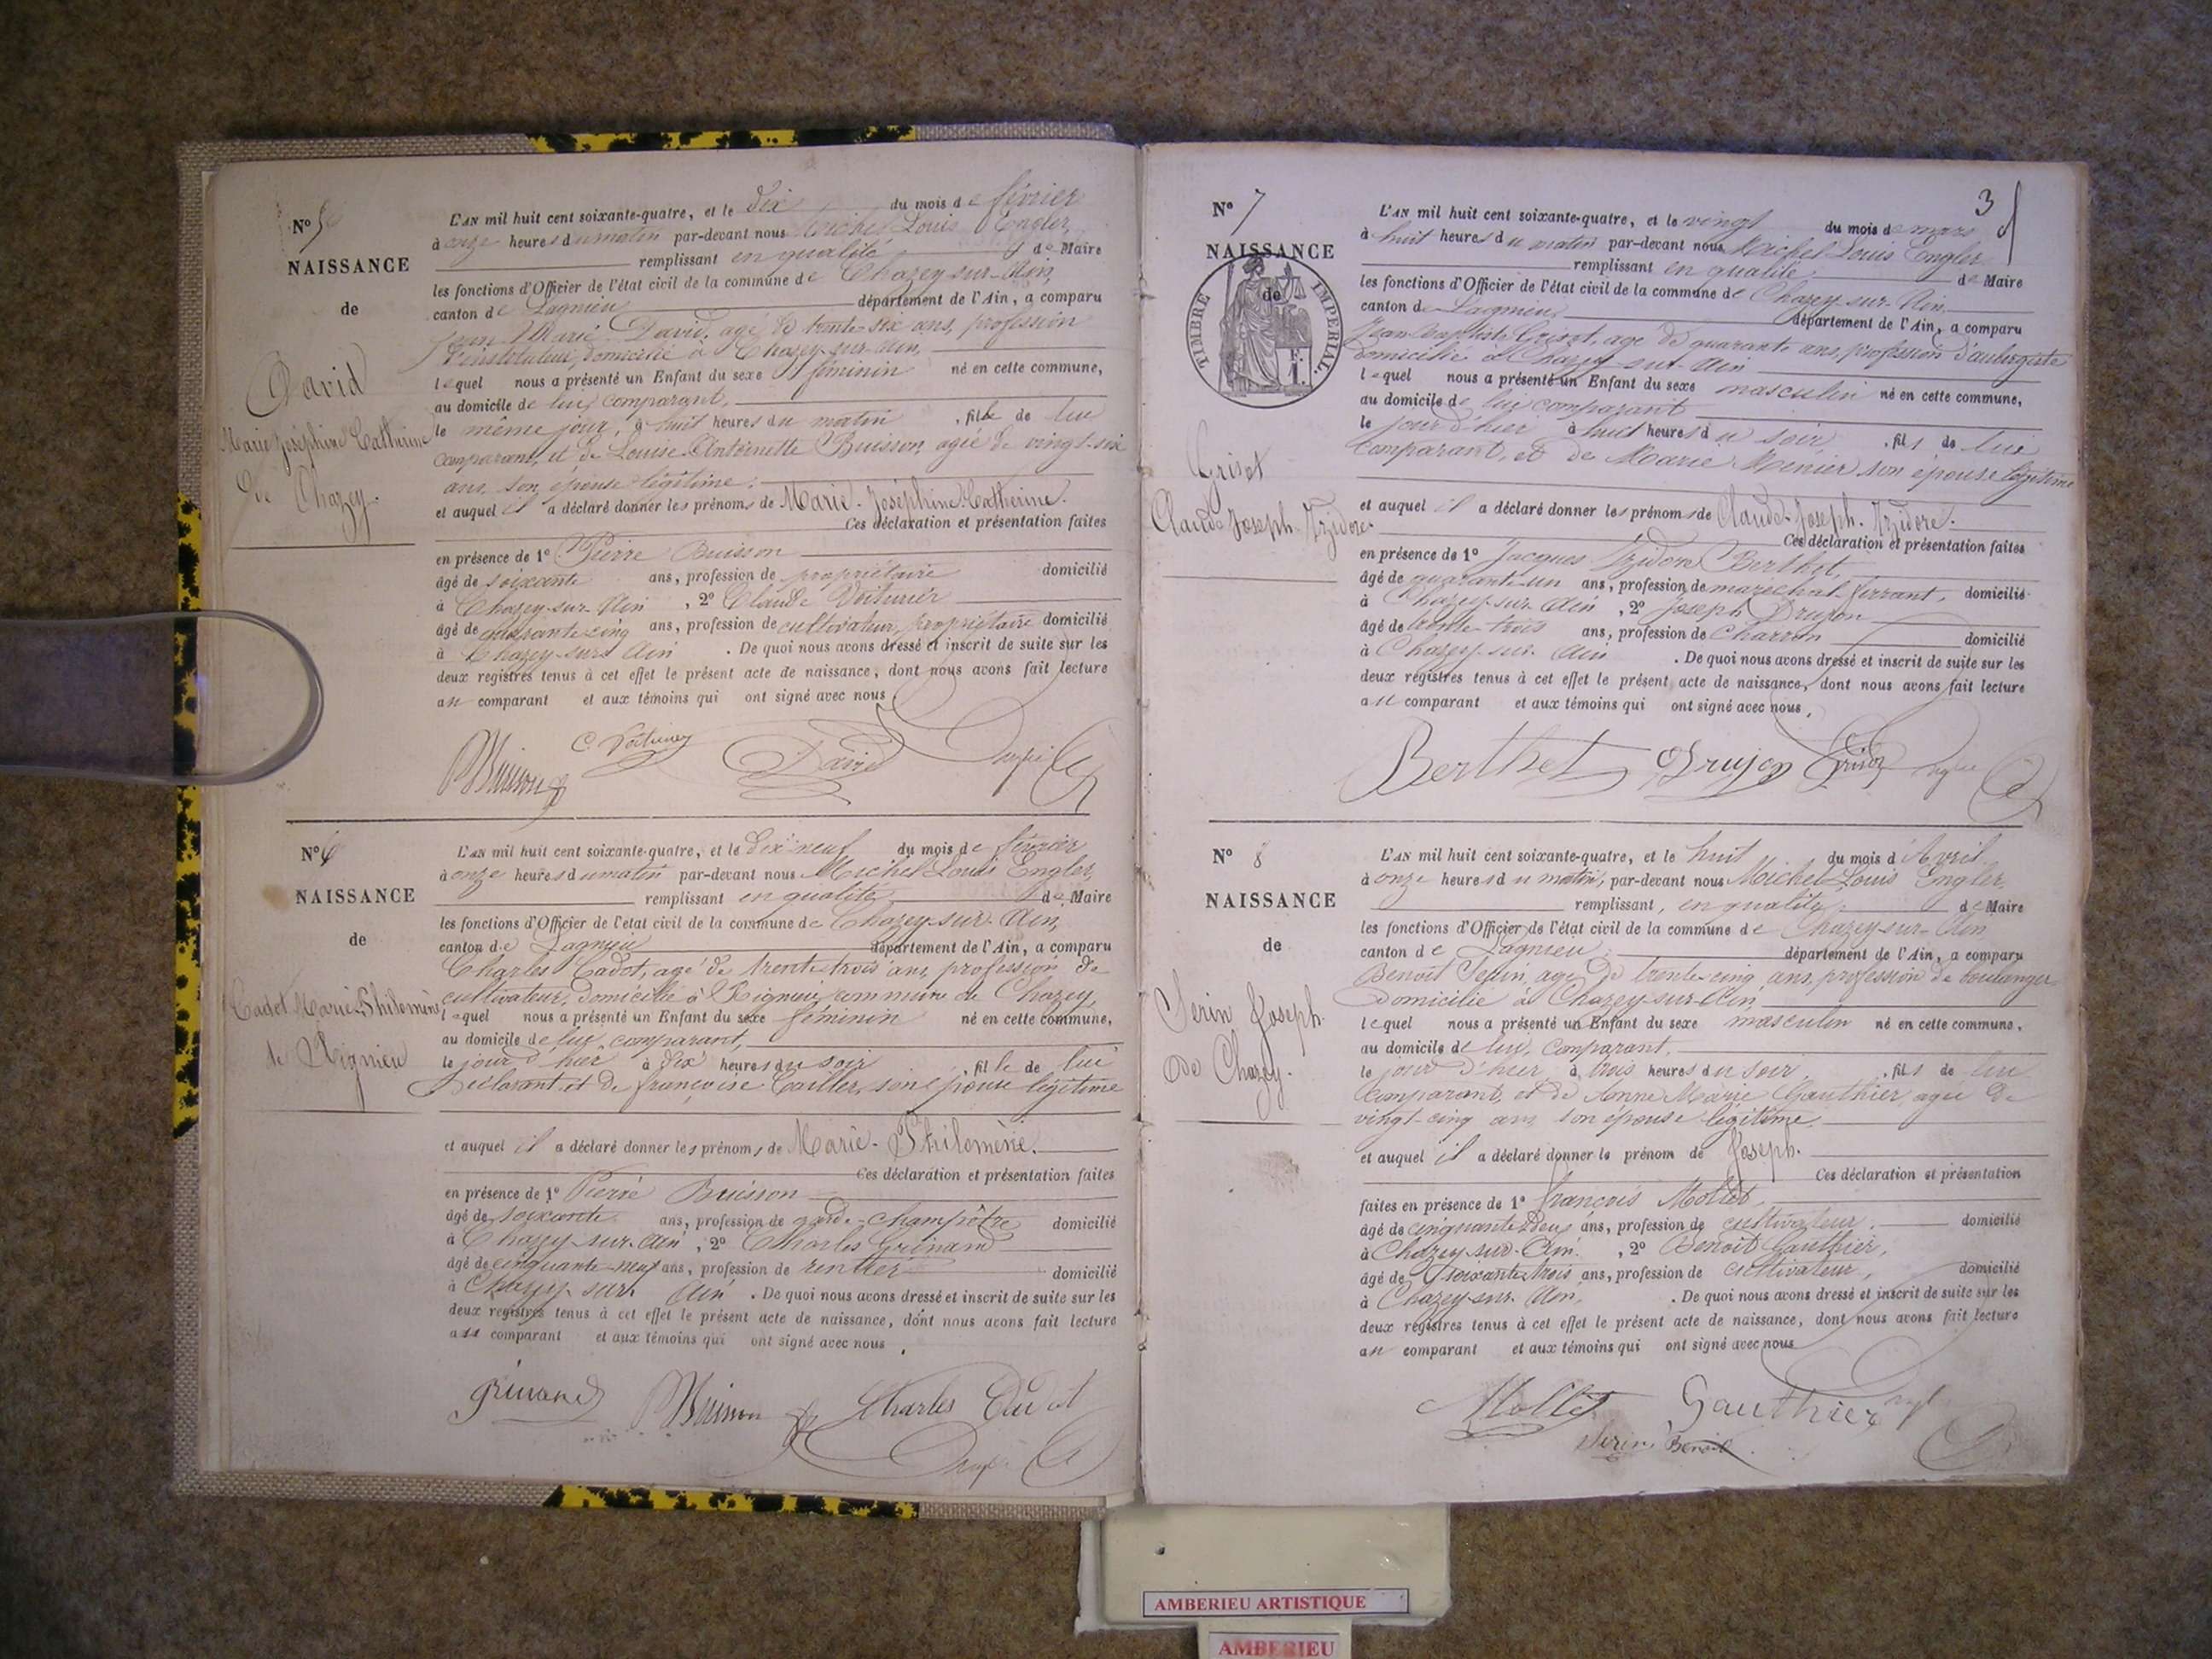 N° 5
NAISSANCE
de
David
Marie Joséphine Catherine
De Chazey.
L'AN mil huit cent soixante-quatre, et le Dix du mois de février
à onze heures du matin par-devant nous Michel Louis Engler,
remplissant en qualité de Maire
les fonctions d'Officier de l'état civil de la commune de Chazey-sur-Ain,
canton de Lagnieu département de l'Ain, a comparu
Jean Marie David, agé de trente-six ans, profession
d'instituteur, domicilié à Chazey-sur-Ain,
lequel nous a présenté un Enfant du sexe féminin né en cette commune,
au domicile de lui, comparant,
le même jour, à huit heures du matin, fille de lui
comparant, et de Louise Antoinette Buisson, agée de vingt-six
ans, son épouse légitime;
et auquel il a déclaré donner les prénoms de Marie-Joséphine-Catherine.
Ces déclaration et présentation faites
en présence de 1° Pierre Buisson
âgé de soixante ans, profession de propriétaire domicilié
à Chazey-sur-Ain, 2° Claude Voiturier
âgé de quarante-cinq ans, profession de cultivateur, propriétaire domicilié
à Chazey-sur-Ain. De quoi nous avons dressé et inscrit de suite sur les
deux registres tenus à cet effet le présent acte de naissance, dont nous avons fait lecture
au comparant et aux témoins qui ont signé avec nous
PBuisson C. Voiturier David
N° 6
NAISSANCE
de
Cadot Marie Philomène,
de Rignieu
L'AN mil huit cent soixante-quatre, et le Dix neuf du mois de février
à onze heures du matin par-devant nous Michel Louis Engler,
remplissant en qualité de Maire
les fonctions d'Officier de l'état civil de la commune de Chazey-sur-Ain,
canton de Lagnieu département de l'Ain, a comparu
Charles Cadot, agé de trente-trois ans, profession de
cultivateur, domicilié à Rignieu, commune de Chazey,
lequel nous a présenté un Enfant du sexe féminin né en cette commune,
au domicile de lui, comparant,
le jour d'hier à dix heures du soir, fille de lui
Déclarant et de françoise Cailler, son épouse légitime
et auquel il a déclaré donner les prénoms de Marie-Philomène.
Ces déclaration et présentation faites
en présence de 1° Pierre Buisson
âgé de soixante ans, profession de garde-champêtre domicilié
à Chazey-sur-Ain, 2° Charles Grinand
âgé de cinquante-neuf ans, profession de rentier domicilié
à Chazey-sur-Ain. De quoi nous avons dressé et inscrit de suite sur les
deux registres tenus à cet effet le présent acte de naissance, dont nous avons fait lecture
au comparant et aux témoins qui ont signé avec nous.
Grinand PBuisson Charles Cadot
3
N° 7
NAISSANCE
de
TIMBRE IMPERIAL.
Grisot
Claude-Joseph-Izidore.
L'AN mil huit cent soixante-quatre, et le vingt du mois de mars
à huit heures du matin par-devant nous Michel Louis Engler
remplissant en qualité de Maire
les fonctions d'Officier de l'état civil de la commune de Chazey-sur-Ain
canton de Lagnieu, département de l'Ain, a comparu
Jean-baptiste Grisot, agé de quarante ans, profession d'aubergiste
domicilié à Chazey-sur-Ain
lequel nous a présenté un Enfant du sexe masculin né en cette commune,
au domicile de lui comparant
le jour d'hier à huit heures du soir, fils de lui
comparant, et de Marie Menier son épouse légitime
et auquel il a déclaré donner les prénoms de Claude-Joseph-Izidore.
Ces déclaration et présentation faites
en présence de 1° Jacques Izidore Berthet,
âgé de quarante-un ans, profession de maréchal-ferrant, domicilié
à Chazey-sur-Ain, 2° Joseph Drujon
âgé de trente-trois ans, profession de Charron domicilié
à Chazey-sur-Ain. De quoi nous avons dressé et inscrit de suite sur les
deux registres tenus à cet effet le présent acte de naissance, dont nous avons fait lecture
au comparant et aux témoins qui ont signé avec nous.
Berthet Drujon Grisot
N° 8
NAISSANCE
de
Serin Joseph.
De Chazey.
L'AN mil huit cent soixante-quatre, et le huit du mois d'Avril
à onze heures du matin, par-devant nous Michel-Louis Engler,
remplissant, en qualité de Maire
les fonctions d'Officier de l'état civil de la commune de Chazey-sur-Ain
canton de Lagnieu, département de l'Ain, a comparu
Benoit Serin, agé de trente-cinq ans, profession de boulanger
domicilié à Chazey-sur-Ain,
lequel nous a présenté un Enfant du sexe masculin né en cette commune,
au domicile de lui, comparant,
le jour d'hier à trois heures du soir, fils de lui
comparant, et de Anne Marie Gauthier, agée de
vingt-cinq ans, son épouse légitime.
et auquel il a déclaré donner le prénom de Joseph.
Ces déclaration et présentation
faites en présence de 1° françois Mollet
âgé de cinquante-deux ans, profession de cultivateur domicilié
à Chazey-sur-Ain, 2° Benoit Gauthier,
âgé de soixante-trois ans, profession de cultivateur, domicilié
à Chazey-sur-Ain. De quoi nous avons dressé et inscrit de suite sur les
deux registres tenus à cet effet le présent acte de naissance, dont nous avons fait lecture
au comparant et aux témoins qui ont signé avec nous
Mollet Gauthier
Serin Benoit
AMBERIEU ARTISTIQUE
AMBERIEU